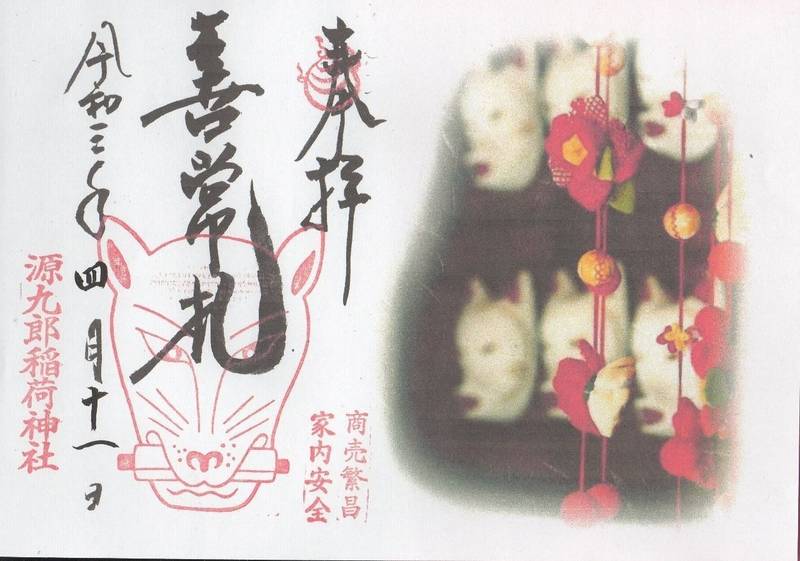 奉拝
商売繁昌
家内安全
善常礼
令和三年四月十一日
源九郎稲荷神社